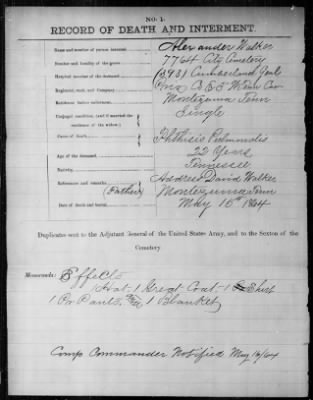 NO. 1.
RECORD OF DEATH AND INTERMENT.
Name and number of person interred. Alexander Walker
Number and locality of the grave. 7764 City Cemetery
Hospital number of the deceased. Cumberland
Regiment, rank, and Company. Co. E 5" Tenn Cav
Residence before enlistment. Montezuma Tenn
Conjugal condition, (and if married the Single
residence of the widow.)
Cause of death. Phthisis Pulmonalis
Age of the deceased. 22 Years
Nativity. Tennessee
References and remarks. Address David Walker
(Father) Montezuma Tenn
Date of death and burial. May 15" 1864
Duplicates sent to the Adjutant General of the United States Army, and to the Sexton of the
Cemetery.
Memoranda: Effects
1 Hat - 1 Great Coat - 1 Shirt
1 Pr Pants, 1 Blanket
Comp Commander Notified May 16/64